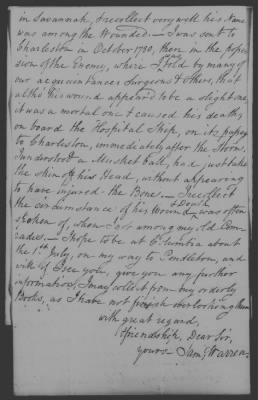 in Savannah, I recollect very well his Name
was among the Wounded. — I was sent to
Charleston in October 1780, then in the posses
sion of the Enemy, where I was told by many of
our acquaintances Surgeons & others, that
altho' his wound appeared to be a slight one,
it was a mortal one & caused his death,
on board the Hospital Ship, on its passage
to Charleston, immediately after the Storm.
I understood a Musket Ball, had just taken
the skin of his Head, without appearing
to have injured the Bone. — I recollect
the circumstance, of his Wound & Death was often
spoken of, when I got among my old Com
rades. — I hope to be at Columbia about
the 1st July, on my way to Pendleton, and
will if I see you, give you any further
information, I may collect from my orderly
Books, as I have not finish overlooking them
with great regard,
& friendship, Dear Sir,
yours Saml. Warren